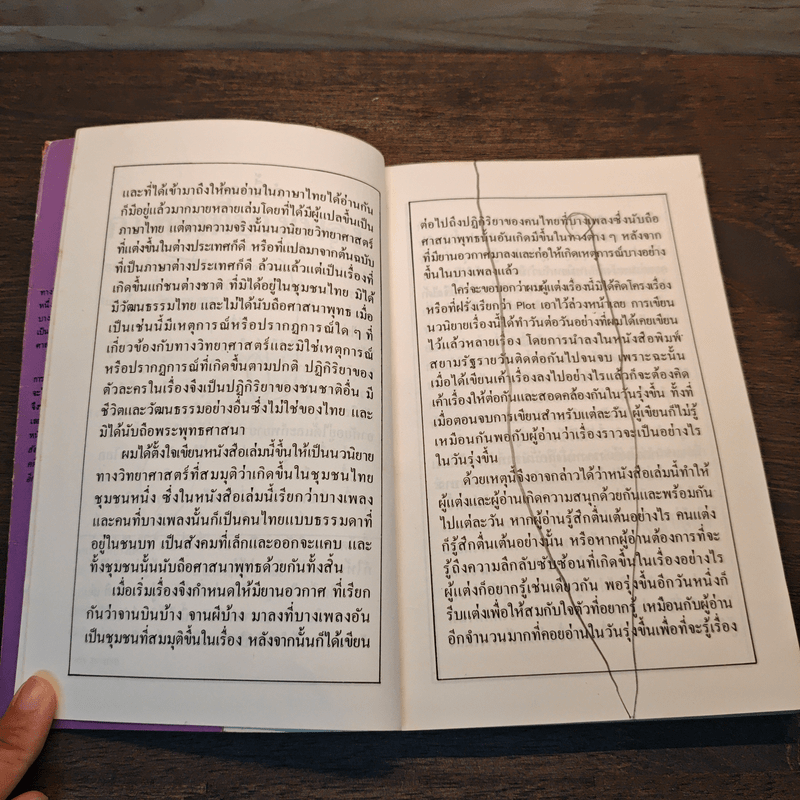 และที่ได้เข้ามาถึงให้คนอ่านในภาษาไทยได้อ่านกัน
ก็มีอยู่แล้วมากมายหลายเล่มโดยที่ได้มีผู้แปลขึ้นเป็น
ภาษาไทย แต่ตามความจริงนั้นนวนิยายวิทยาศาสตร์
ที่แต่งขึ้นในต่างประเทศก็ดี หรือที่แปลมาจากต้นฉบับ
ที่เป็นภาษาต่างประเทศก็ดี ล้วนแล้วแต่เป็นเรื่องที่
เกิดขึ้นแก่ชนต่างชาติ ที่มิได้อยู่ในชุมชนไทย มิได้
มีวัฒนธรรมไทย และไม่ได้นับถือศาสนาพุทธ เมื่อ
เป็นเช่นนี้มีเหตุการณ์หรือปรากฏการณ์ใด ๆ ที่
เกี่ยวข้องกับทางวิทยาศาสตร์และมิใช่เหตุการณ์
หรือปรากฏการณ์ที่เกิดขึ้นตามปกติ ปฏิกิริยาของ
ตัวละครในเรื่องจึงเป็นปฏิกิริยาของชนชาติอื่น มี
ชีวิตและวัฒนธรรมอย่างอื่นซึ่งไม่ใช่ของไทย และ
มิได้นับถือพระพุทธศาสนา
ผมได้ตั้งใจเขียนหนังสือเล่มนี้ขึ้นให้เป็นนวนิยาย
ทางวิทยาศาสตร์ที่สมมุติว่าเกิดขึ้นในชุมชนไทย
ชุมชนหนึ่ง ซึ่งในหนังสือเล่มนี้เรียกว่าบางเพลง
และคนที่บางเพลงนั้นก็เป็นคนไทยแบบธรรมดาที่
อยู่ในชนบท เป็นสังคมที่เล็กและออกจะแคบ และ
ทั้งชุมชนนั้นนับถือศาสนาพุทธด้วยกันทั้งสิ้น
เมื่อเริ่มเรื่องจึงกำหนดให้มียานอวกาศ ที่เรียก
กันว่าจานบินบ้าง จานผีบ้าง มาลงที่บางเพลงอัน
เป็นชุมชนที่สมมุติขึ้นในเรื่อง หลังจากนั้นก็ได้เขียน
ต่อไปถึงปฏิกิริยาของคนไทยที่บางเพลงซึ่งนับถือ
ศาสนาพุทธนั้นอันเกิดมีขึ้นในทางต่าง ๆ หลังจาก
ที่มียานอวกาศมาลงและก่อให้เกิดเหตุการณ์บางอย่าง
ขึ้นในบางเพลงแล้ว
ใคร่จะขอบอกว่าผมผู้แต่งเรื่องนี้มิได้คิดโครงเรื่อง
หรือที่ฝรั่งเรียกว่า Plot เอาไว้ล่วงหน้าเลย การเขียน
นวนิยายเรื่องนี้ได้ทำวันต่อวันอย่างที่ผมได้เคยเขียน
ไว้แล้วหลายเรื่อง โดยการนำลงในหนังสือพิมพ์
สยามรัฐรายวันติดต่อกันไปจนจบ เพราะฉะนั้น
เมื่อได้เขียนเค้าเรื่องลงไปอย่างไรแล้วก็จะต้องคิด
เค้าเรื่องให้ต่อกันและสอดคล้องกันในวันรุ่งขึ้น ทั้งที่
เมื่อตอนจบการเขียนสำหรับแต่ละวัน ผู้เขียนก็ไม่รู้
เหมือนกันพอกับผู้อ่านว่าเรื่องราวจะเป็นอย่างไร
ในวันรุ่งขึ้น
ด้วยเหตุนี้จึงอาจกล่าวได้ว่าหนังสือเล่มนี้ทำให้
ผู้แต่งและผู้อ่านเกิดความสนุกด้วยกันและพร้อมกัน
ไปแต่ละวัน หากผู้อ่านรู้สึกตื่นเต้นอย่างไร คนแต่ง
ก็รู้สึกตื่นเต้นอย่างนั้น หรือหากผู้อ่านต้องการที่จะ
รู้ถึงความลึกลับซับซ้อนที่เกิดขึ้นในเรื่องอย่างไร
ผู้แต่งก็อยากรู้เช่นเดียวกัน พอรุ่งขึ้นอีกวันหนึ่งก็
รีบแต่งเพื่อให้สมกับใจตัวที่อยากรู้ เหมือนกับผู้อ่าน
อีกจำนวนมากที่คอยอ่านในวันรุ่งขึ้นเพื่อที่จะรู้เรื่อง